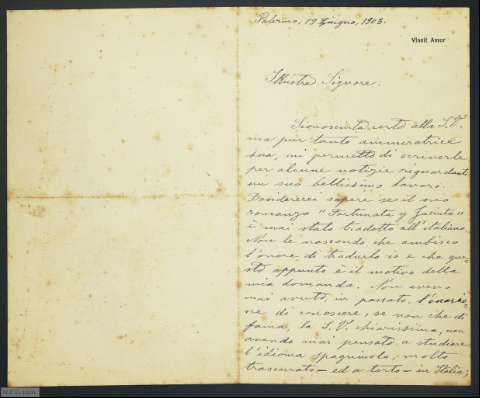 Palermo, 19 Giugno, 1903.
Vincit Amor
Illustre Signore.
Sconosciuta certo alla S.V.
ma pur tanto ammiratrice
sua, mi permetto di scriverle
per alcune notizie riguardanti
un suo bellissimo lavoro.
Desidererei sapere se il suo
romanzo "Fortunata y Jacinta"
è mai stato tradotto all'italiano.
Non le nascondo che ambisco
l'onore di tradurlo io e che que-
sto appunto è il motivo della
mia domanda. Non avevo
mai avuto, in passato, l'onore
di conoscere, se non che di
fama, la S.V. chiarissima, non
avendo mai pensato a studiare
l'idioma spagnuolo, molto
trascurato – ed a torto – in Italia;